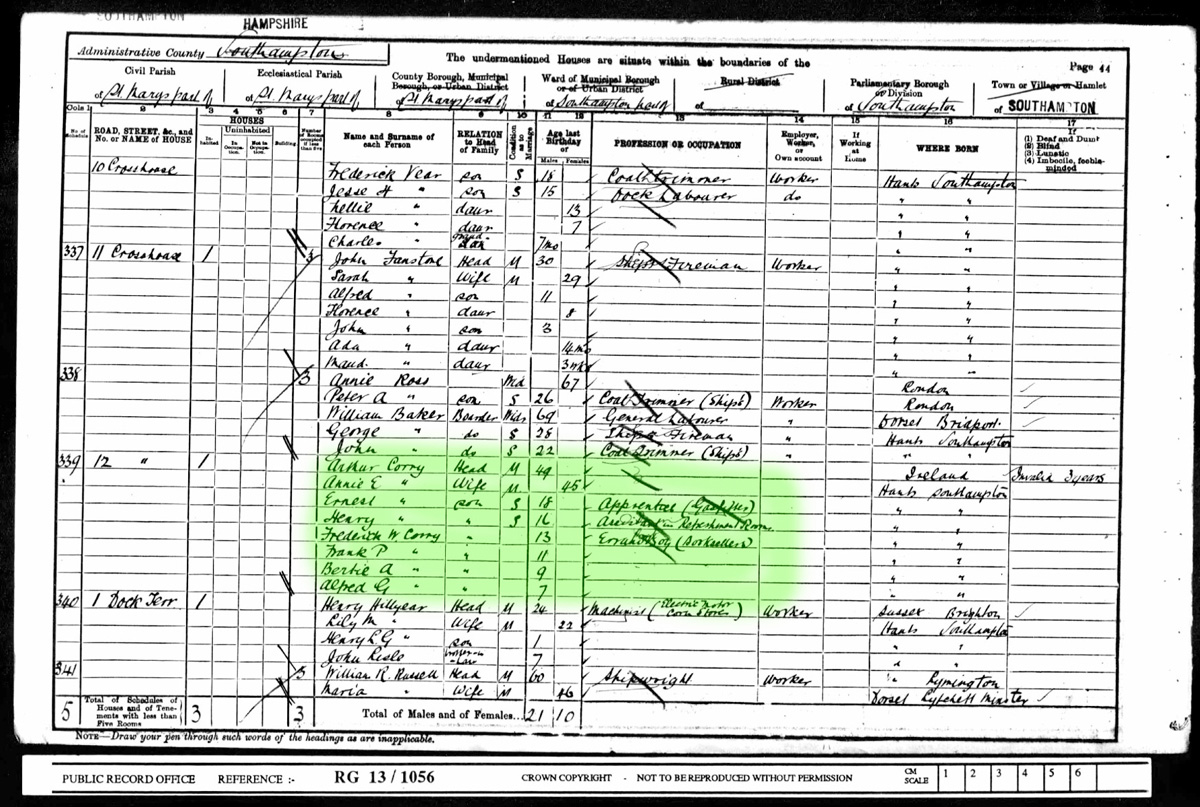 SOUTHAMPTON
HAMPSHIRE
Administrative County Southampton
The undermentioned Houses are situate within the boundaries of the
Page 44
Civil Parish
Ecclesiastical Parish
County Borough, Municipal Borough, or Urban District
Ward of Municipal Borough or of Urban District
Rural District
Parliamentary Borough or Division
Town or Village or Hamlet
of St Marys part of
of St Marys part of
of St Marys part of
of Southampton part of
of
of Southampton
of SOUTHAMPTON
Cols 1 2 3 4 5 6 7 8 9 10 11 12 13 14 15 16 17
No. of Schedule
ROAD, STREET, &c., and No. or NAME of HOUSE
HOUSES
Inhabited
Uninhabited
In Occupation
Not in Occupation
Building
Number of Rooms occupied if less than five
Name and Surname of each Person
RELATION to Head of Family
Condition as to Marriage
Age last Birthday of
Males Females
PROFESSION OR OCCUPATION
Employer, Worker, or Own account
If Working at Home
WHERE BORN
If
(1) Deaf and Dumb
(2) Blind
(3) Lunatic
(4) Imbecile, feeble-minded
10 Crosshouse Frederick Vear son S 18 Coal trimmer Worker Hants Southampton
Jesse H " son S 15 Dock Labourer do " "
Nellie " daur 13 " "
Florence " daur 7 " "
Charles " grand son 7mo " "
337 11 Crosshouse 1 3 John Fanstone Head M 30 Ships Fireman Worker " "
Sarah " Wife M 29 " "
Alfred " son 11 " "
Florence " daur 8 " "
John " son 3 " "
Ada " daur 14mo " "
Maud " daur 3wk " "
338 3 Annie Ross Wd 67 London
Peter A " son S 26 Coal Trimmer (Ships) Worker London
William Baker Boarder Widr 69 General Labourer " Dorset Bridport
George " do S 28 Ships Fireman " Hants Southampton
John " do S 22 Coal Trimmer (Ships) " "
339 12 " 1 Arthur Corry Head M 49 Ireland Invalid 3 years
Annie E " Wife M 45 Hants Southampton
Ernest " son S 18 Apprentice (Gasfitter) " "
Henry " " S 16 Assistant in Refreshment Rooms " "
Frederick W Corry " 13 Errand Boy (Booksellers) " "
Frank P " " 11 " "
Bertie A " " 9 " "
Alfred G " " 7 " "
340 1 Dock Terr 1 Henry Hillyear Head M 24 Machinist (Electric Motor Corn Stores) Worker Sussex Brighton
Lily M " Wife M 22 Hants Southampton
Henry L G " son 1 " "
John Lisle brother-in-law 7 " "
341 3 William R. Russell Head M 60 Shipwright Worker " Lymington
Maria " Wife M 46 Dorset Lytchett Minster
5 Total of Schedules of Houses and of Tenements with less than Five Rooms 3 3 Total of Males and of Females... 21 10
NOTE—Draw your pen through such words of the headings as are inapplicable.
PUBLIC RECORD OFFICE REFERENCE :- RG 13 / 1056 CROWN COPYRIGHT - NOT TO BE REPRODUCED WITHOUT PERMISSION CM SCALE 1 2 3 4 5 6